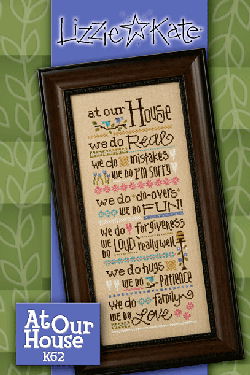 Lizzie☆Kate
at our House
we do Real
we do mistakes
we do I'm Sorry
we do do-overs
we do FUN!
we do forgiveness
we do LOUD really well
we do hugs
we do patience
we do family
we do Love
At Our
House
K62